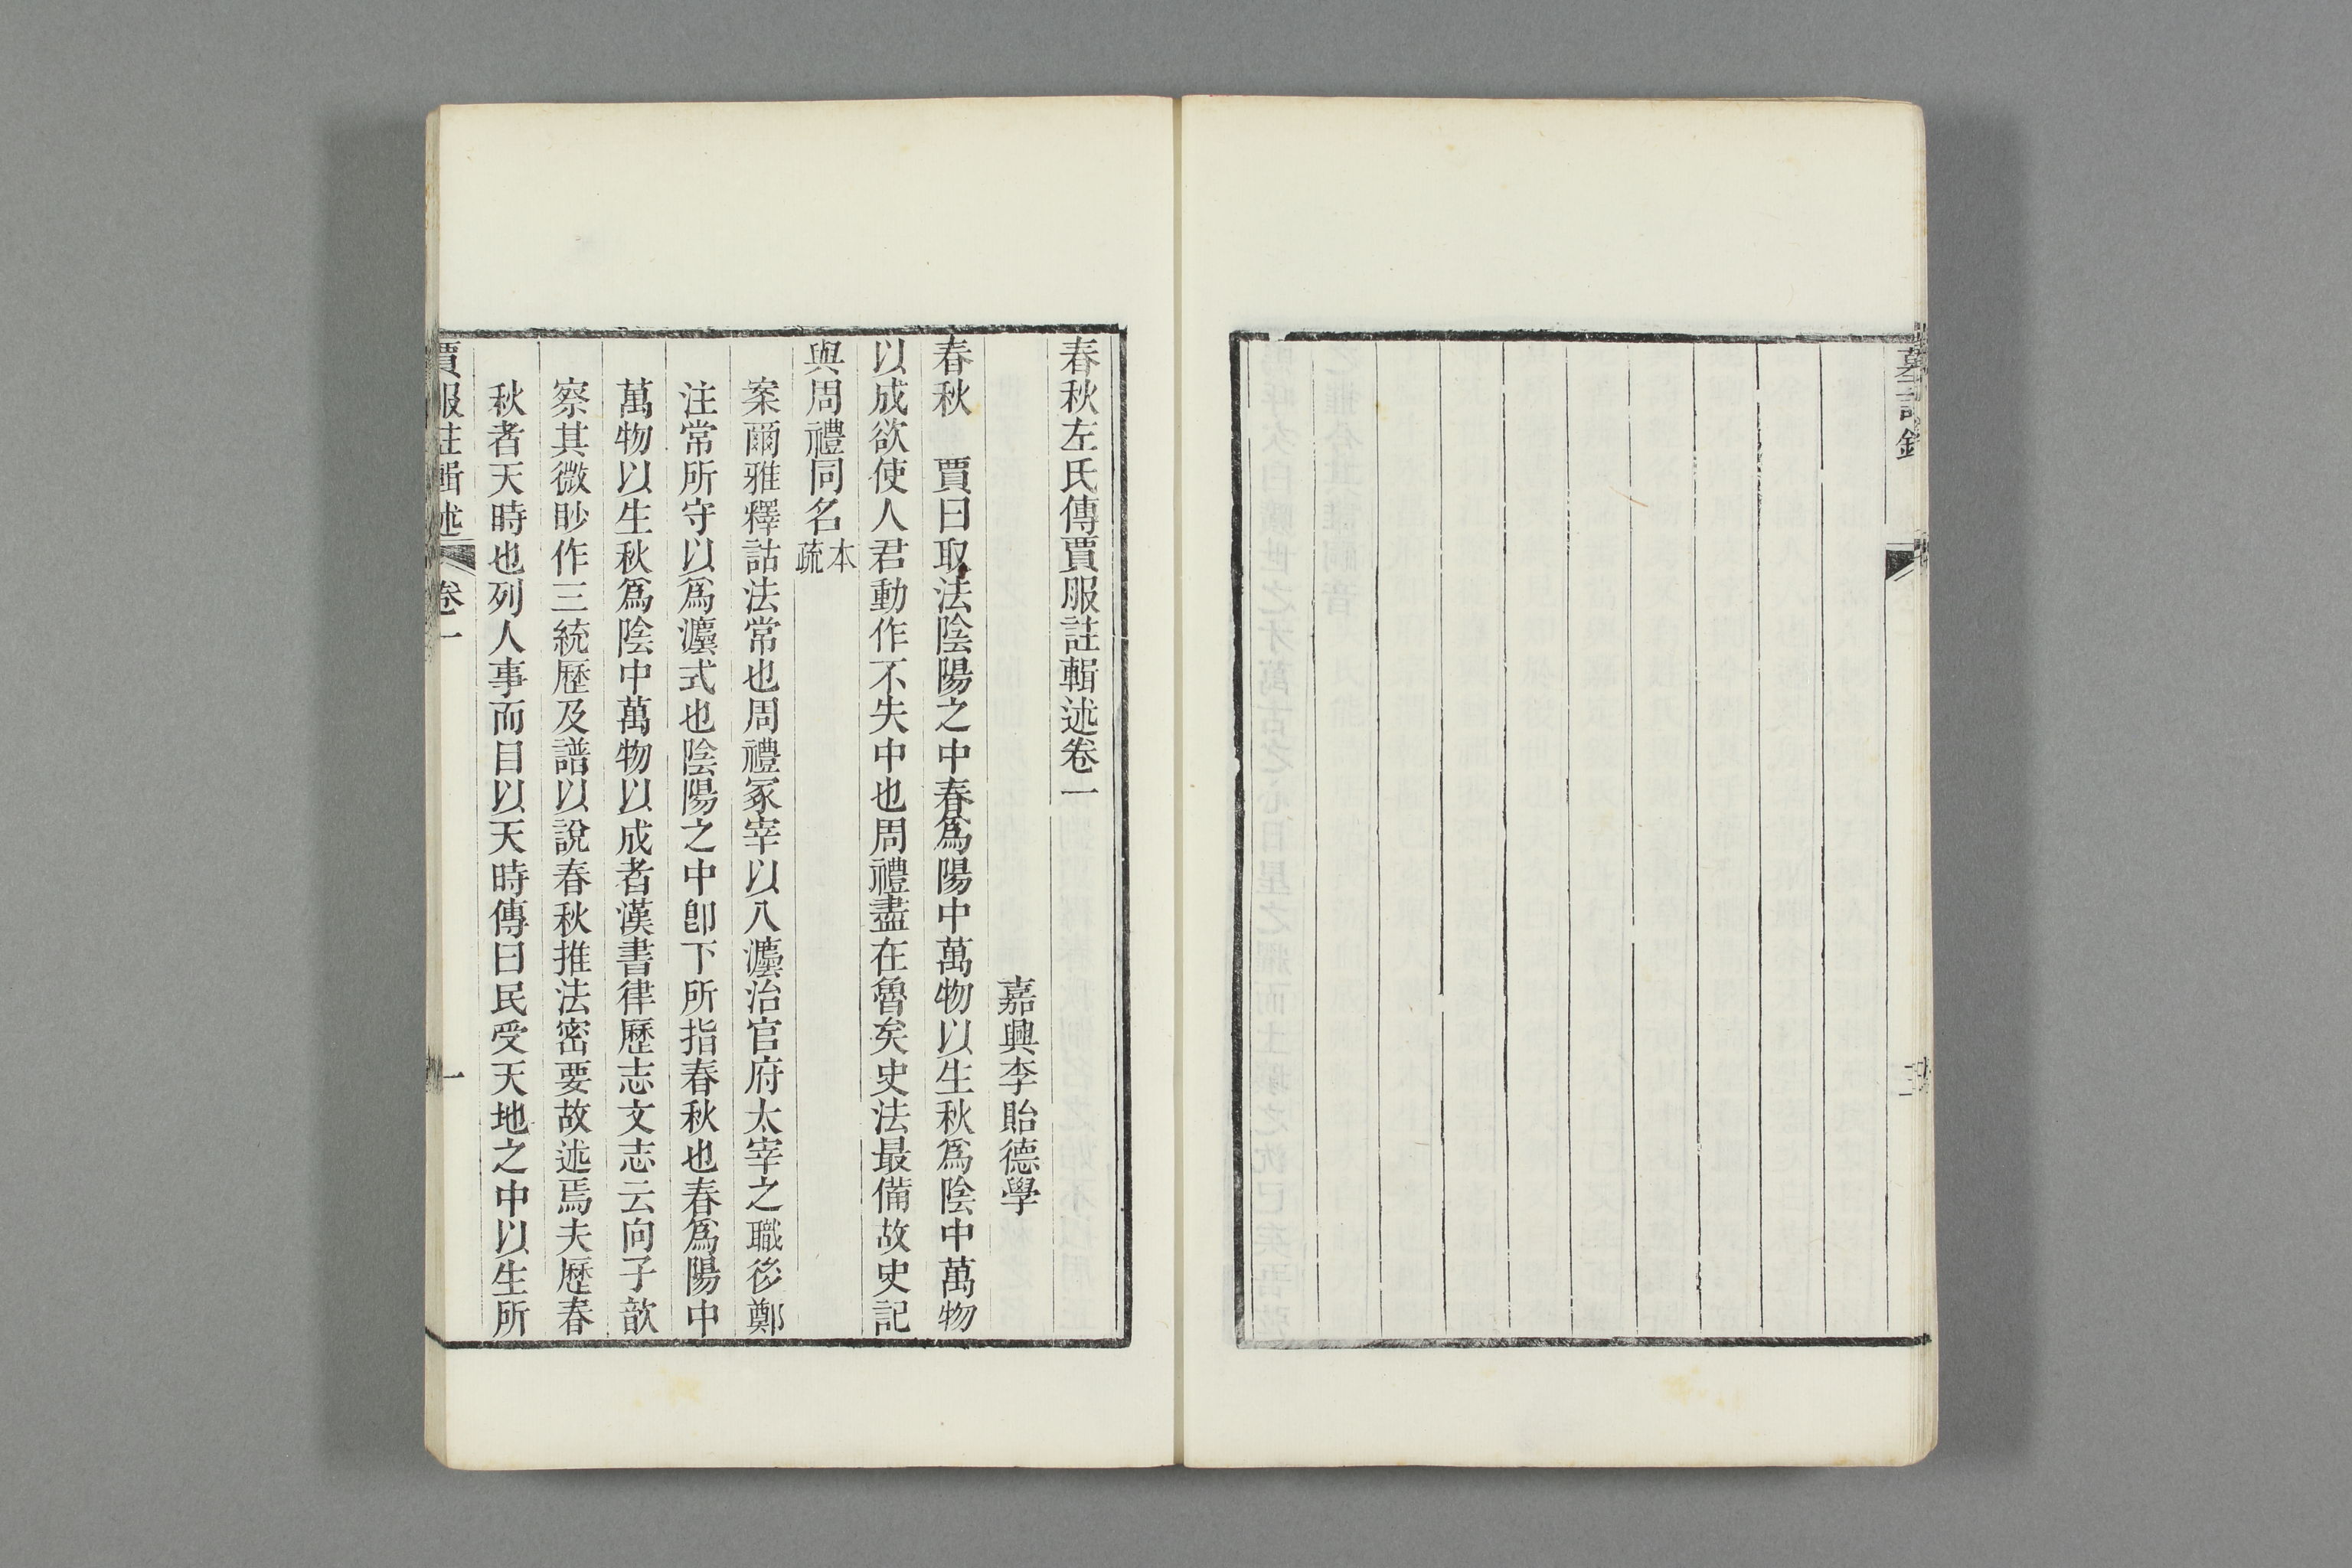 墓誌銘
春秋左氏傳賈服註輯述卷一
嘉興李貽德學
春秋　賈曰取法陰陽之中春爲陽中萬物以生秋爲陰中萬物
以成欲使人君動作不失中也周禮盡在魯矣史法最備故史記
與周禮同名本疏
案爾雅釋詁法常也周禮冢宰以八灋治官府太宰之職後鄭
注常所守以爲灋式也陰陽之中卽下所指春秋也春爲陽中
萬物以生秋爲陰中萬物以成者漢書律歷志文志云向子歆
察其微眇作三統歷及譜以說春秋推法密要故述焉夫歷春
秋者天時也列人事而目以天時傳曰民受天地之中以生所
賈服註輯述　卷一　一